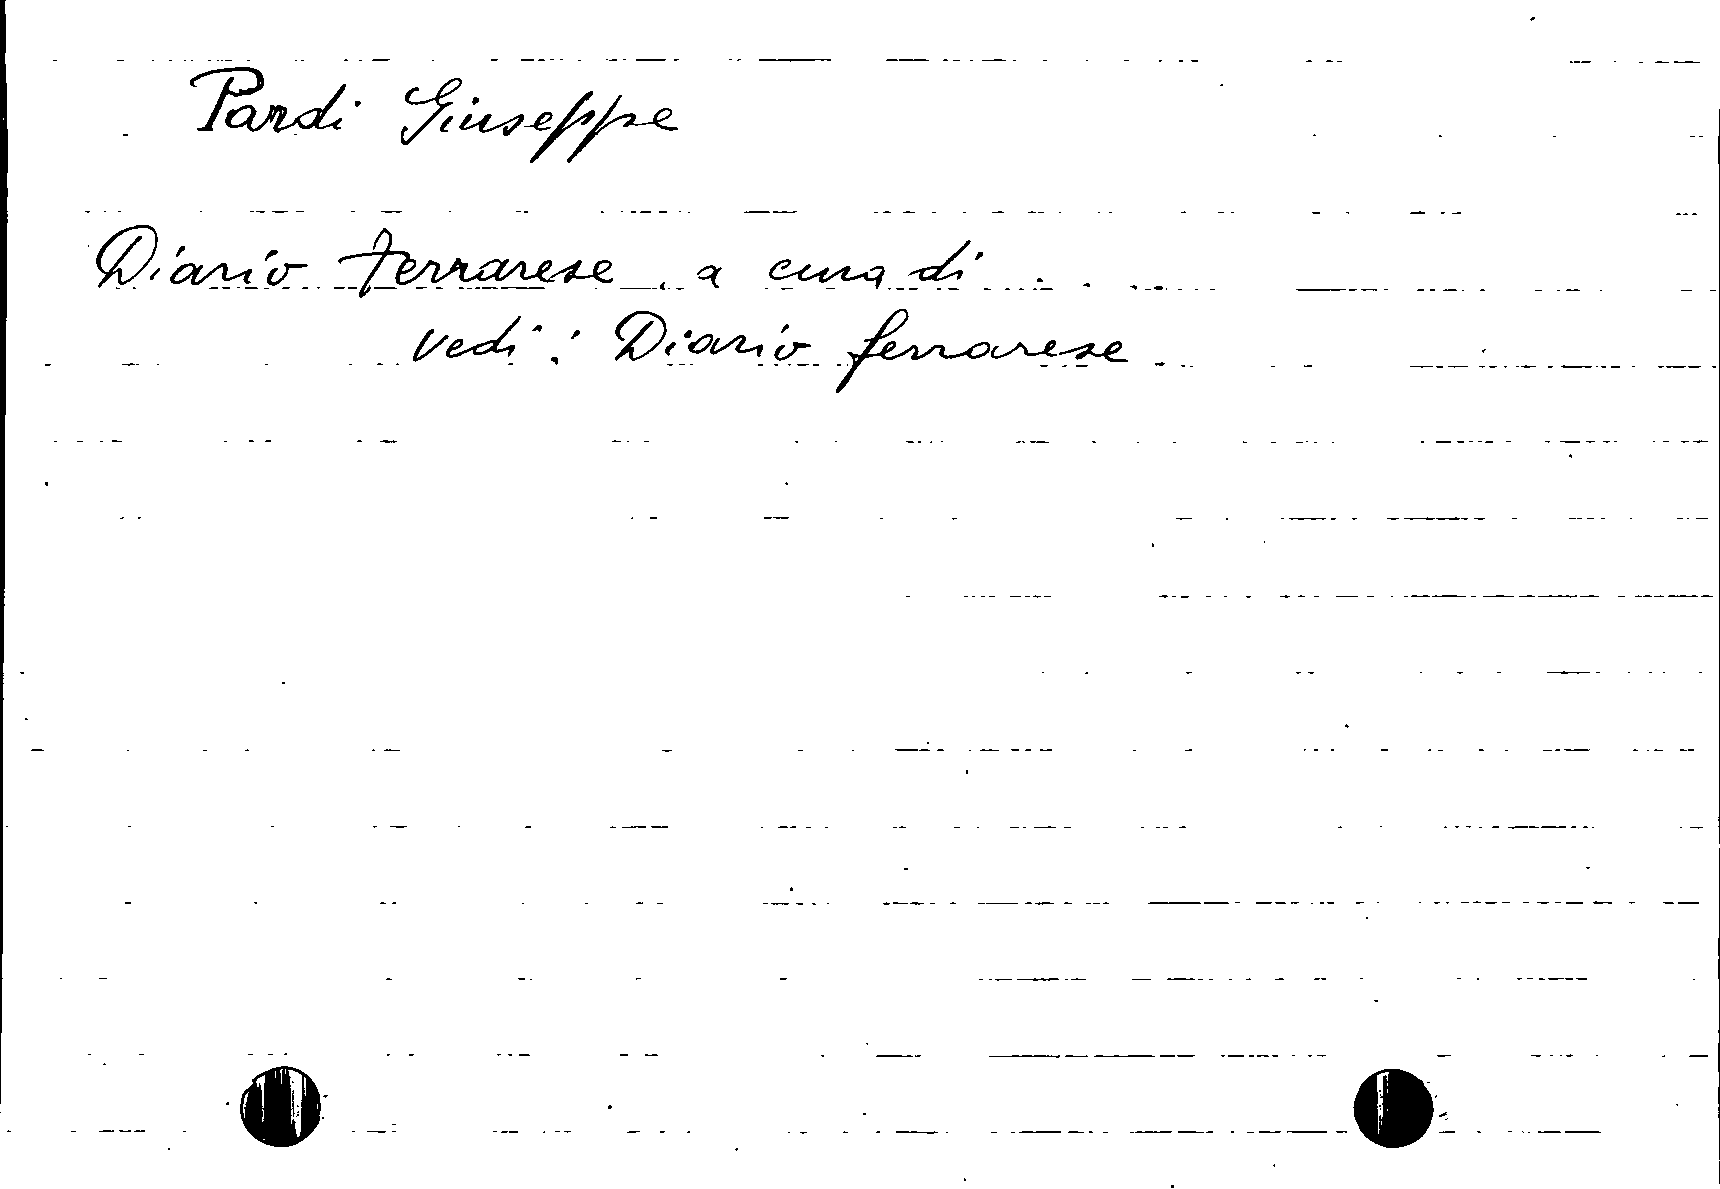 Pardi Giuseppe
Diario ferrarese, a cura di ...
vedi: Diario ferrarese